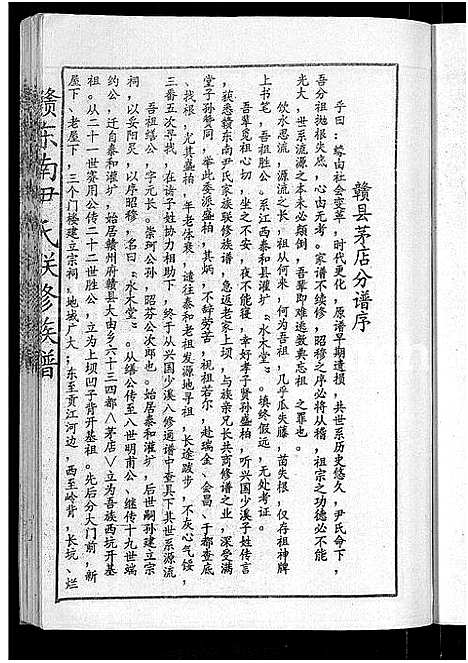 赣县茅店分谱序
予曰：蜂由社会变革，时代更化，原谱早期遗损，共世系历史悠久，尹氏命下，
吾分祖抛根失底，心由无考。家谱不续修，昭穆之序必将从稽，祖宗之功德必不能
光大，世系流源之本未必颠倒，吾辈即难逃数典忘祖之罪也。
饮水思流，源流之长，祖从何来，何为吾祖，几乎瓜失藤，苗失根，仅存祖神牌
上书笔，吾祖胜公。系江西泰和县灌圹“水木堂”。填终假远，无处考证。
吾辈觅祖心切，坐之不安，夜不能寝，幸好孝子贤孙盛柏，听兴国少溪子姓传言
，获悉赣东南尹氏家族联修族谱，急返老家上坝，与族亲兄长共商修谱之业，深受满
堂子孙赞同，举此委派盛柏，其炳，不辞劳苦，祝祖若尔，赴瑞金、会昌、于都查底
、找根，尤其盛柏，年老体衰，遣往和老祖发源地寻祖，长途跋步，不灰心气馁，
三番五次寻找，在诸子姓协力相助下，终于从兴国少溪八修通谱中查具下其世系源流
吾祖缮公，字元长。崇珂公孙，昭芬公次郎也。始居泰和灌圹，后世嗣孙建立宗
祠，以妥阳灵，以序昭穆，名曰：“水木堂”。从缮公传至八世明甫公、继传十九世端
约公，迁自泰和灌圹，始居赣州府赣县大由乡六十三四都（茅店）立为吾族西坑开基
祖。从二十一世赛用公传二十二世胜公，立为上坝凹子背开基祖。先后分大门前，新
屋下、老屋下，三个门楼建立宗祠，地域广大；东至贡江河边，西至岭背，长坑、烂
赣东南尹氏联修族谱